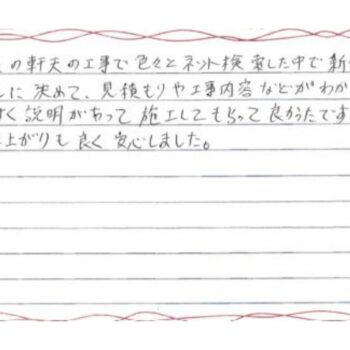 の軒天の工事で色々とネット検索した中で新
に決めて、見積もりや工事内容などがわか
く説明があって施工してもらって良かったです
上がりも良く安心しました。